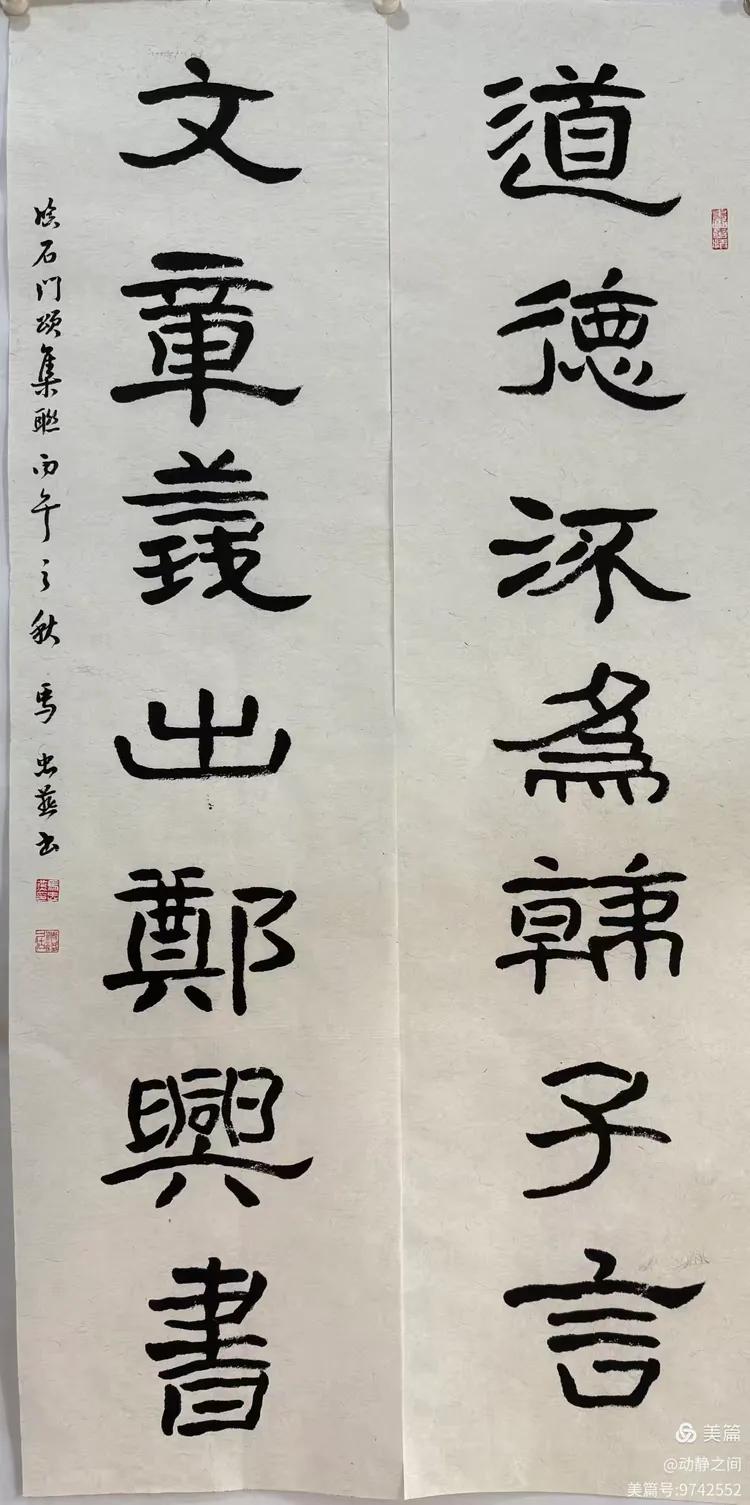 道德深為韓子言
文章義出鄭興書
臨石門頌集聯丙午之秋馬忠燕書
美篇
@动静之间
美篇号:9742552